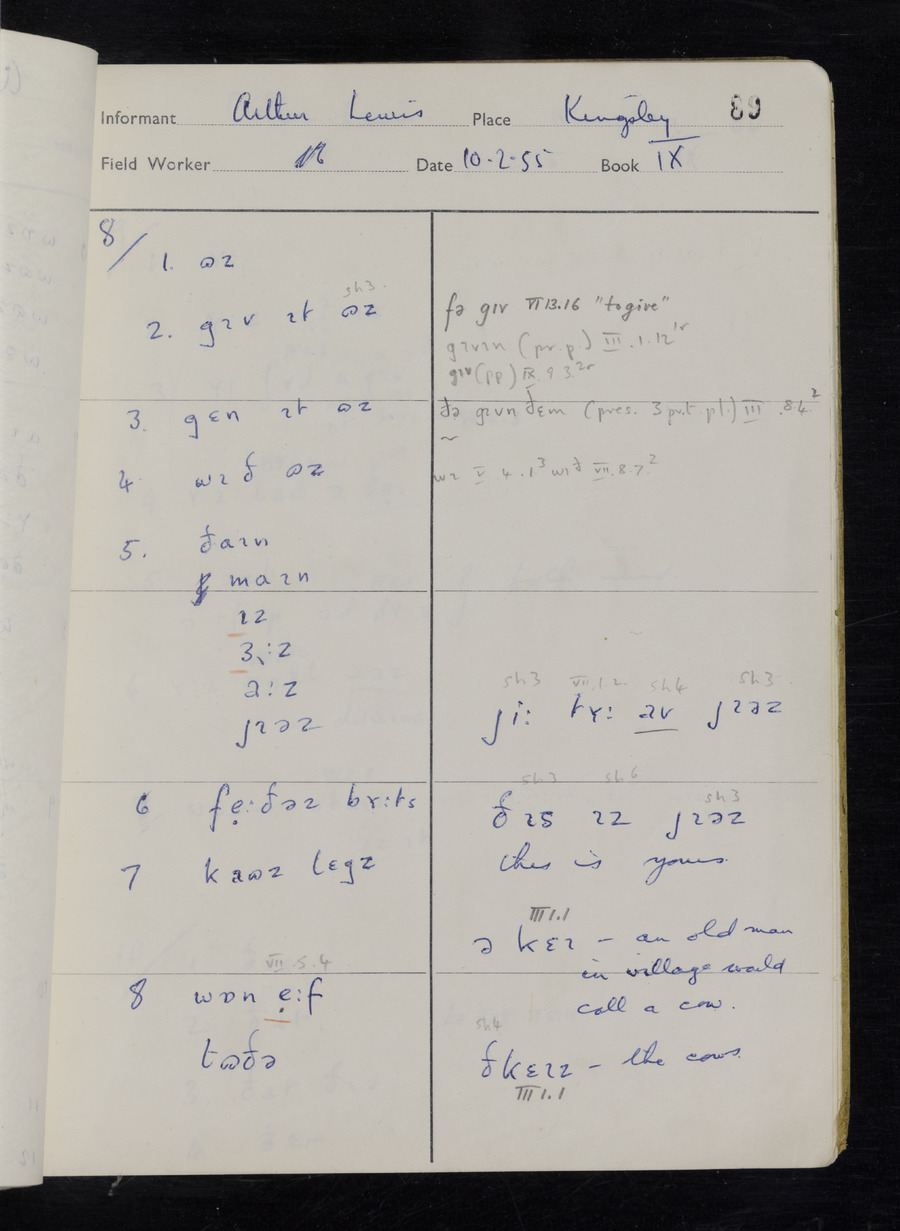 Informant Arthur Lewis Place Kingsley 89
Field Worker Date 10·2·55 Book IX
8/ 1. ɷz
sh3.
2. gɪv ɪt ɷz
fə gɪv VI 13.16 "to give"
gɪvɪn (pr.p.) III.1.12
gɪv (pp) IX.9.3
3. gɛn ɪt ɷz
ðə gɪvn ðem (pres. 3 pr.t pl.) III.8.4²
4. wɪð ɷz
wɪ V 4.1³ wɪð VII.8.7²
5. ðaɪn
maɪn
ɪz
ɜ:z
a:z
jɪəz
sh3 VII.1.2 sh4 sh3
ji: tʏ: av jɪəz
sh3 sh6 sh3
6 fẹ:ðəz bʏ:ts
ðɪs ɪz jɪəz
this is yours.
7 kaɷz lɛgz
III 1.1
ə kɛɪ – an old man
in village would
call a cow.
VII.5.4
8 wɒn ẹ:f
tɷðə
sh4
ðkɛɪz – the cows.
III 1.1